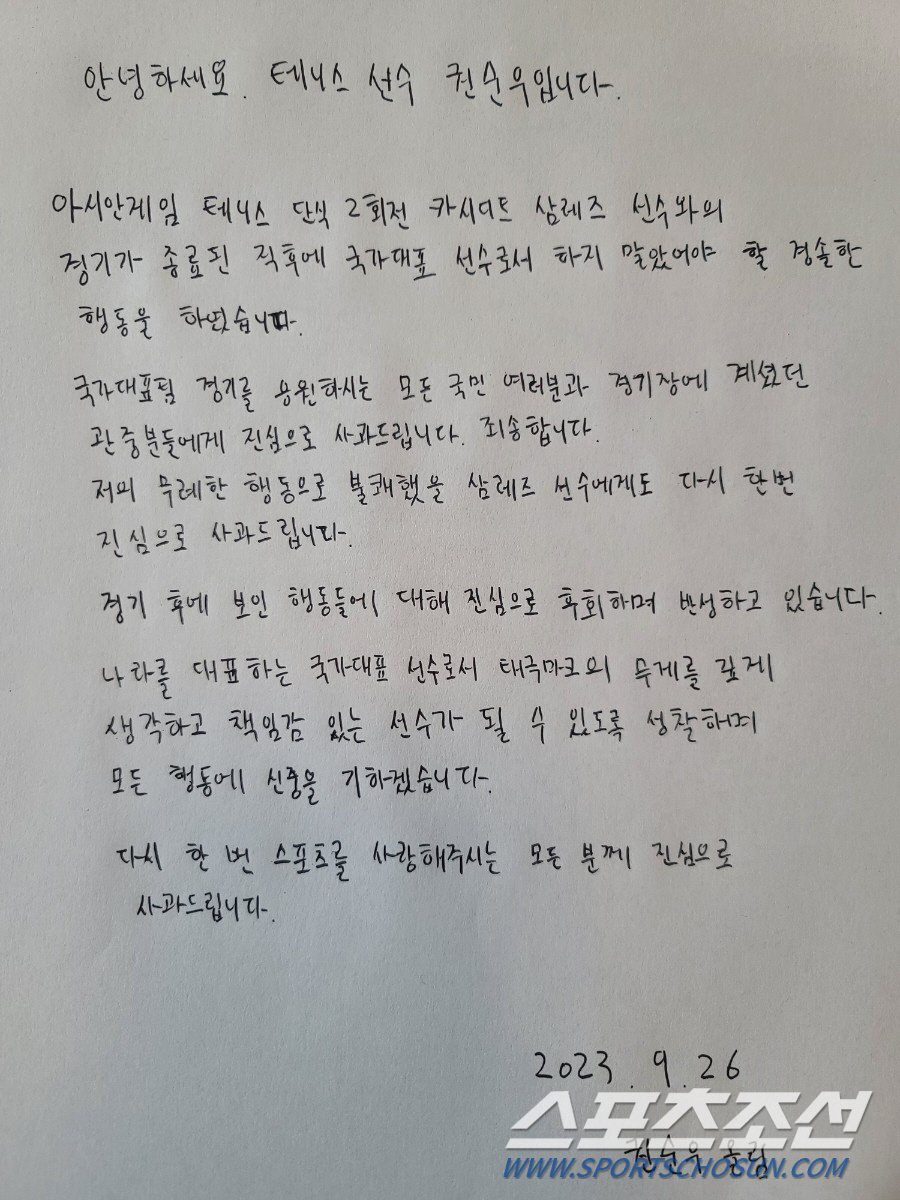 안녕하세요. 테니스 선수 권순우입니다.
아시안게임 테니스 단식 2회전 카시디트 삼레즈 선수와의
경기가 종료된 직후에 국가대표 선수로서 하지 말았어야 할 경솔한
행동을 하였습니다.
국가대표팀 경기를 응원하시는 모든 국민 여러분과 경기장에 계셨던
관중분들에게 진심으로 사과드립니다. 죄송합니다.
저의 무례한 행동으로 불쾌했을 삼레즈 선수에게도 다시 한번
진심으로 사과드립니다.
경기 후에 보인 행동들에 대해 진심으로 후회하며 반성하고 있습니다.
나라를 대표하는 국가대표 선수로서 태극마크의 무게를 깊게
생각하고 책임감 있는 선수가 될 수 있도록 성찰하며
모든 행동에 신중을 기하겠습니다.
다시 한 번 스포츠를 사랑해주시는 모든 분께 진심으로
사과드립니다.
2023. 9. 26
스포츠조선
권순우 올림
WWW.SPORTSCHOSUN.COM